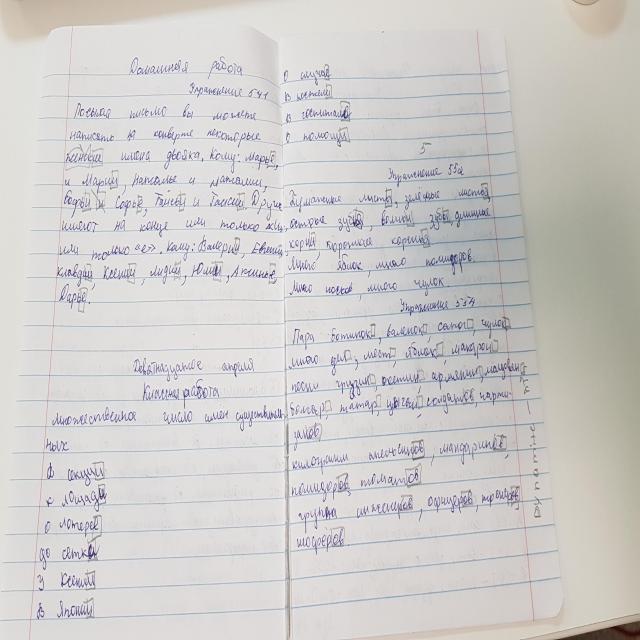 Домашняя работа
Упражнение 541
письма вы можете
написать на конверте некоторые
имена двояко. Кому: Марье,
и Марии, Наталье и Наталии,
Софье и Софье, и Таисии. Другие
имеют на конце или только «и»,
или только «е». Кому: Валерии, Евгении,
Клавдии, Ксении, Лидии, Юлии, Аксинье,
Дарье.
Девятнадцатое апреля
Классная работа
Множественное число имён существитель-
ных
В секции
К лошади
О лотерее
До сетки
У Ксении
В Японии
О случае
В постели
В гостинице
О помощи
5
Упражнение 552
Бумажные листы, зелёные листья,
острые зубы, зубья, длинные
корни,
Много яблок, много помидоров.
Много носков, много чулок.
Упражнение 553
Пара ботинок, валенок, сапог, чулок
много дел, мест, яблок, макарон
песни грузин, осетин, армян, молдаван,
болгар, татар, цыган, солдатов парти-
занов
килограмм апельсинов, мандаринов,
помидоров, томатов
группа инженеров, офицеров,
шофёров